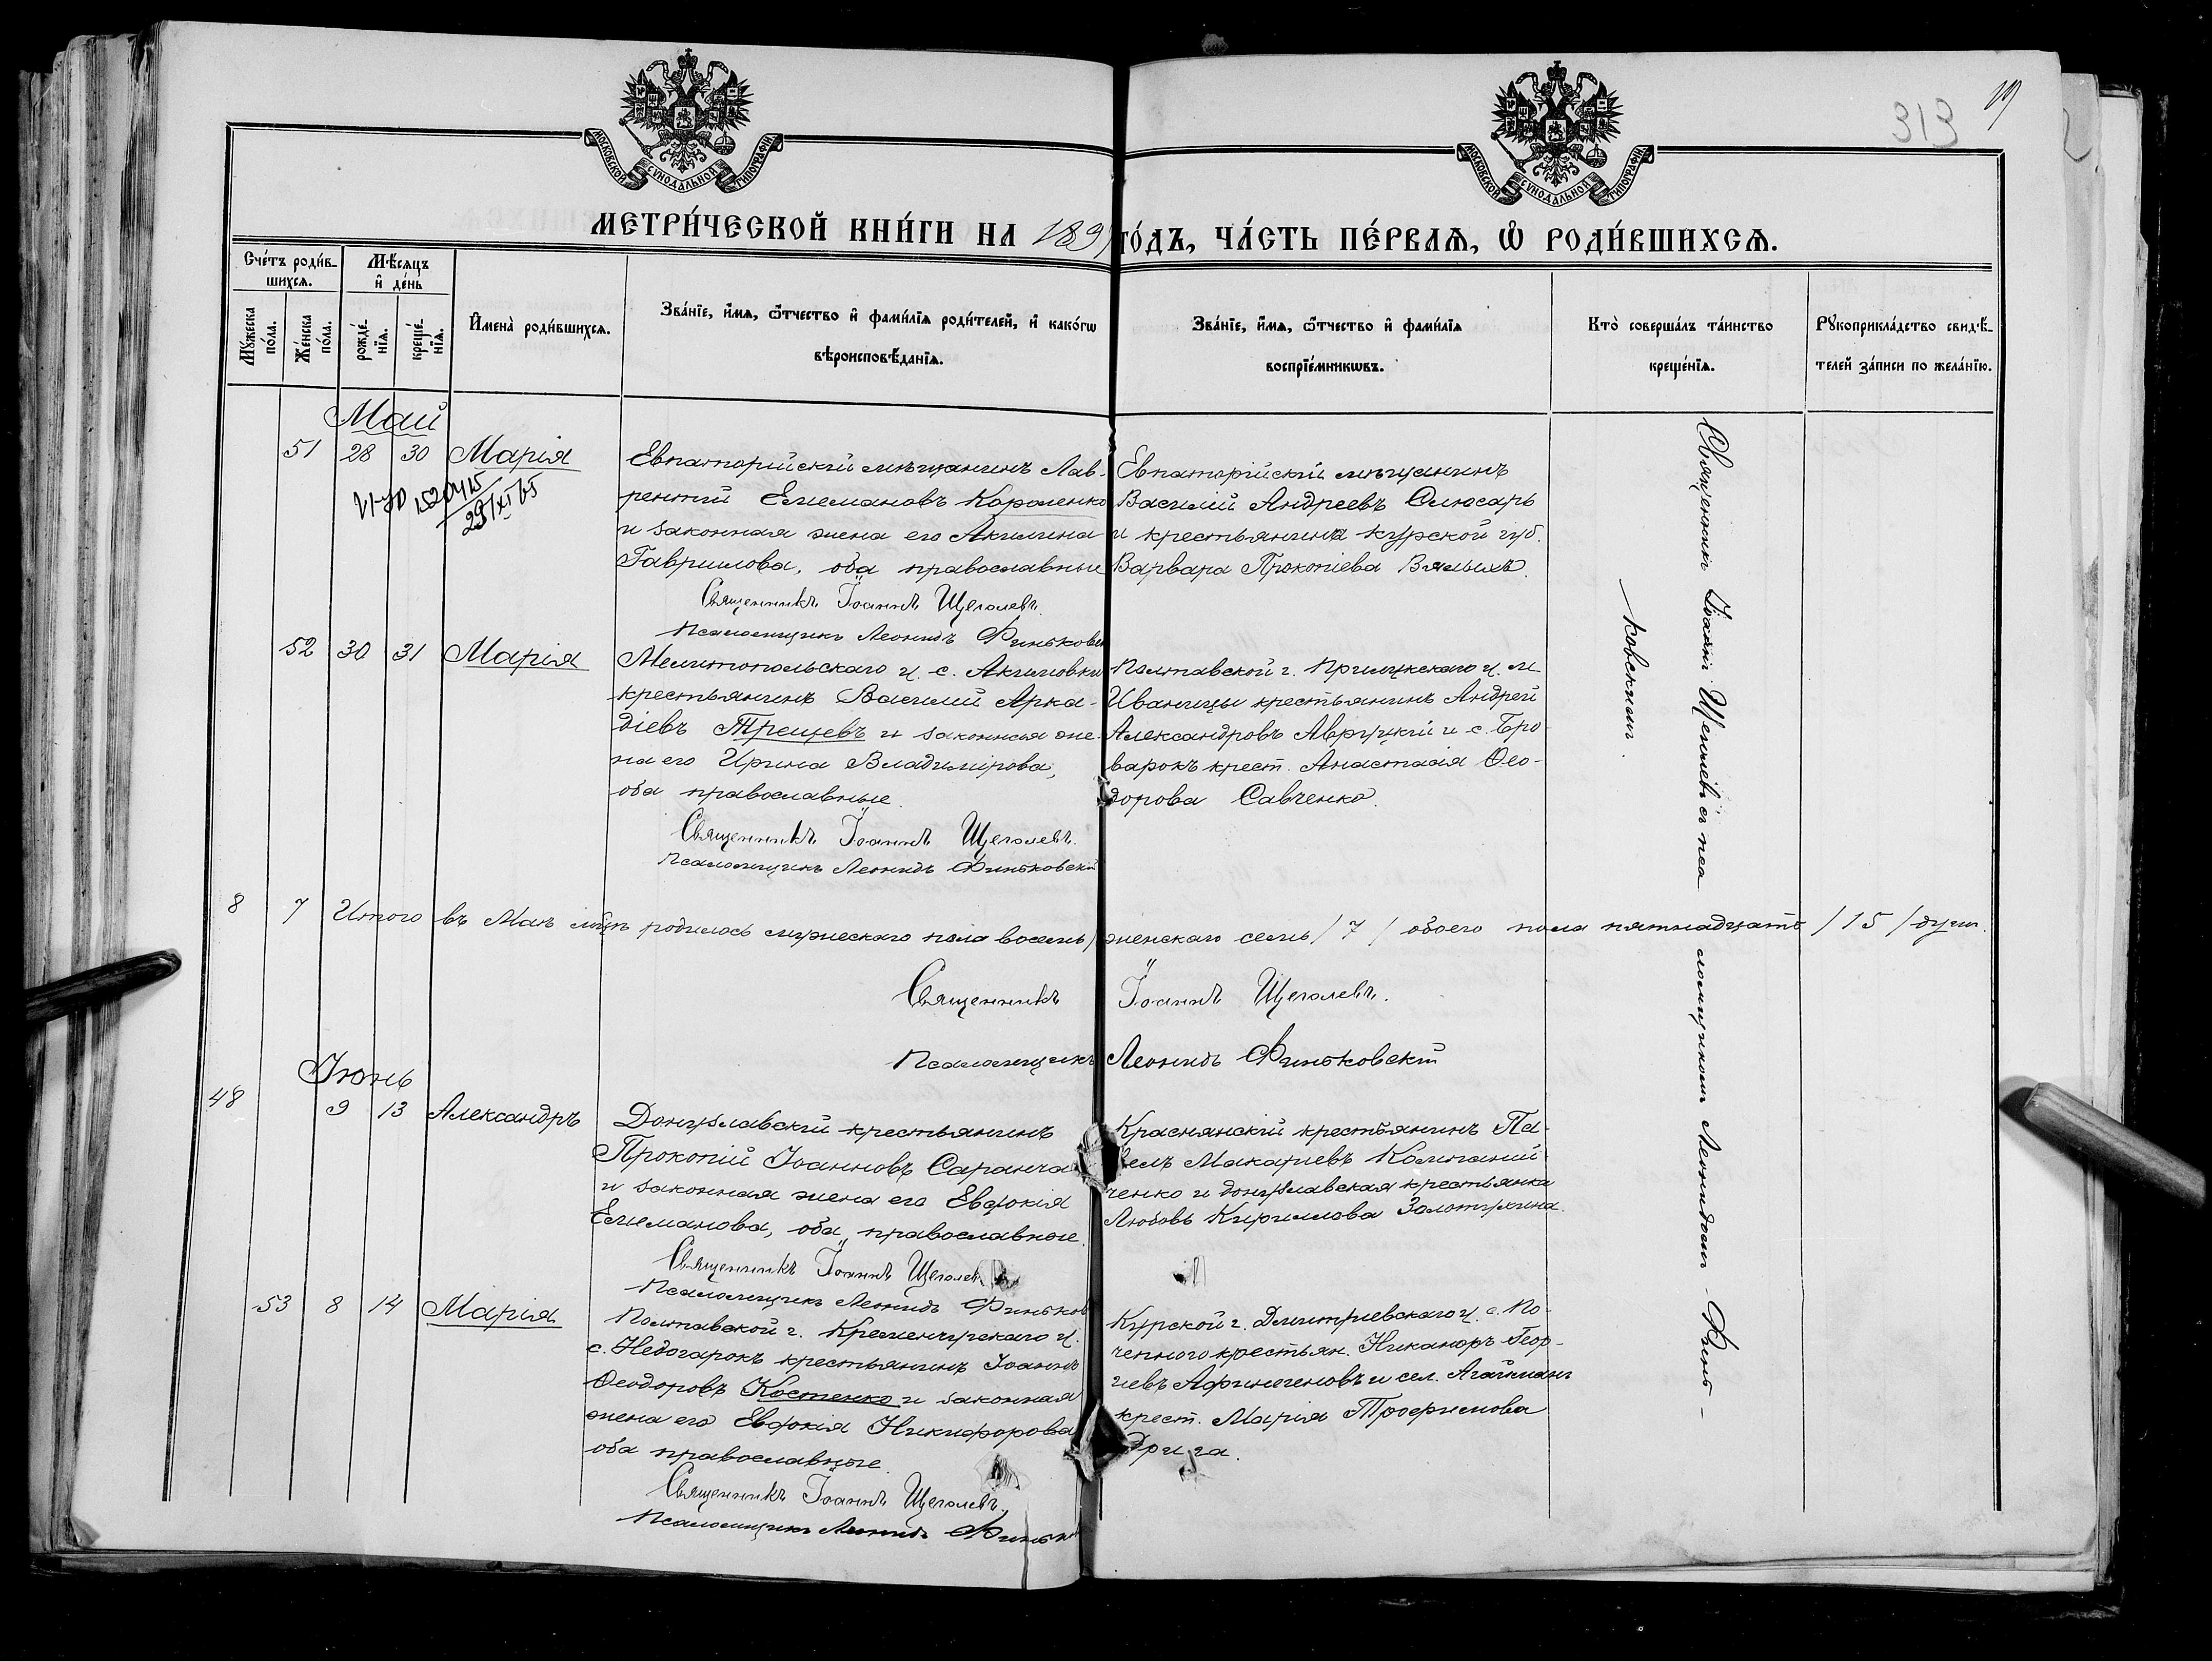 313
19
МОСКОВСКОЙ СѴНОДАЛЬНОЙ ТИПОГРАФІИ
МОСКОВСКОЙ СѴНОДАЛЬНОЙ ТИПОГРАФІИ
МЕТРИ́ЧЕСКОЙ КНИ́ГИ НА 189 ГО́ДЪ, ЧА́СТЬ ПЕ́РВАѦ, Ѡ РОДИ́ВШИХСѦ.
Сче́тъ роди́в-
шихсѧ.
Мѣ́сѧцъ
и҆ де́нь
Мꙋ́жеска по́ла.
Же́нска по́ла.
рожде́-нїѧ.
креще́-нїѧ.
И҆мена̀ роди́вшихсѧ.
Зва́нїе, и҆́мѧ, ѻ҆́тчество и҆ фами́лїѧ роди́телей, и҆ како́гѡ
вѣроисповѣ́данїѧ.
Зва́нїе, и҆́мѧ, ѻ҆́тчество и҆ фами́лїѧ
воспрїе́мникѡвъ.
Кто̀ соверша́лъ та́инство
креще́нїѧ.
Рꙋкоприкла́дство свидѣ́-
телей за́писи по жела́нїю.
Май
51 28 30 Марія
1520415
29/XI 65
Евпаторійскій мѣщанинъ Лав-
рентій Елемановъ Короленко
и законная жена его Акилина
Гавриилова, оба православные
Священникъ Іоаннъ Щеголевъ.
Псаломщикъ Леонидъ Финьковск
Евпаторійскій мѣщанинъ
Василій Андреевъ Слюсарь
и крестьянина Курской губ.
Варвара Прокопіева Вялыхъ.
52 30 31 Марія
Мелитопольскаго у. с. Акимовки
крестьянинъ Василій Арка-
діевъ Трещевъ и законная же-
на его Ирина Владимірова,
оба православные.
Священникъ Іоаннъ Щеголевъ.
Псаломщикъ Леонидъ Финьковскій
Полтавской г. Прилукскаго у. м.
Иваницы крестьянинъ Андрей
Александровъ Авруцкій и с. Бро-
варокъ крест. Анастасія Ѳео-
дорова Савченко.
8 7 Итого въ Маѣ мѣцѣ родилось мужескаго пола восемь / женскаго семь / 7 / обоего пола пятнадцать / 15 / душ.
Священникъ Іоаннъ Щеголевъ.
Псаломщикъ Леонидъ Финьковскій
Іюнь
48 9 13 Александръ
Донузлавскій крестьянинъ
Прокопій Іоанновъ Саранча
и законная жена его Евдокія
Елеманова, оба православные.
Священникъ Іоаннъ Щеголевъ
Псаломщикъ Леонидъ Финьков
Краснянскій крестьянинъ Па-
велъ Макаріевъ Компаній-
ченко и донузлавская крестьянка
Любовь Кириллова Золотухина.
53 8 14 Марія
Полтавской г. Кременчугскаго у.
с. Недогарокъ крестьянинъ Іоаннъ
Ѳеодоровъ Костенко и законная
жена его Евдокія Никифорова
оба православные.
Священникъ Іоаннъ Щеголевъ.
Псаломщикъ Леонидъ Финьк
Курской г. Дмитріевскаго у. с. По-
ченного крестьян. Никаноръ Геор-
гіевъ Афиногеновъ и сел. Агайманъ
крест. Марія Трофимова
Дрига.
Священникъ Іоаннъ Щеголевъ съ псаломщикомъ Леонидомъ Финь-
ковскимъ.